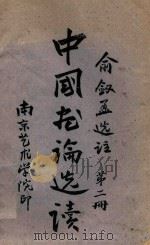 俞剑华选注 第二册
中国书论选读
南京艺术学院印